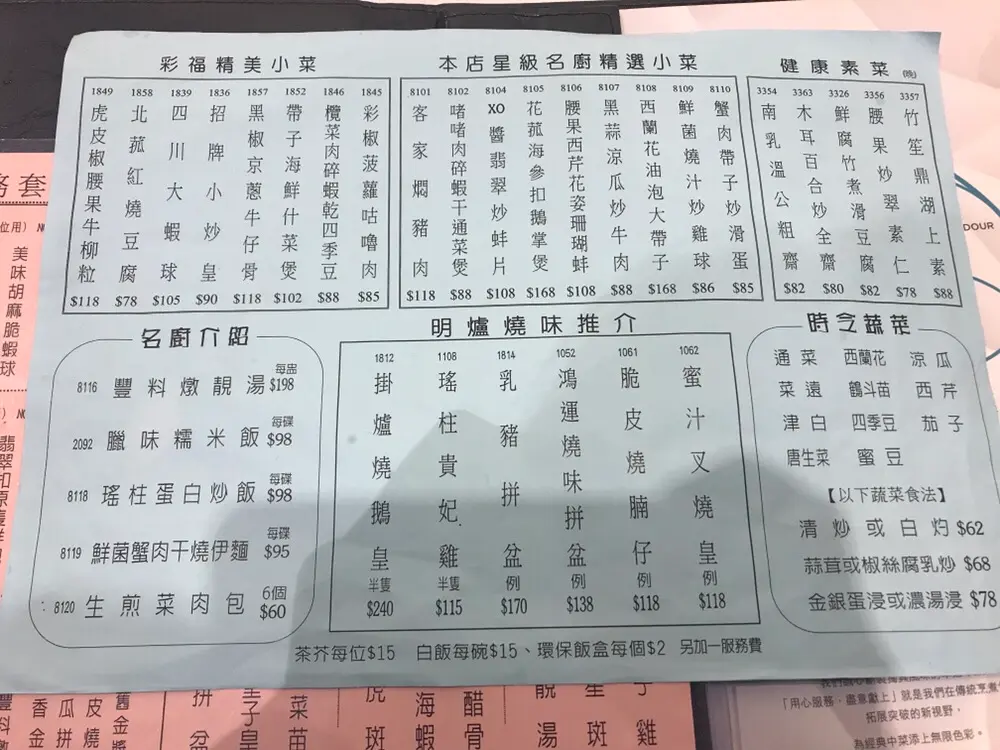 彩福精美小菜
1849 虎皮椒腰果牛柳粒 $118
1858 北菰紅燒豆腐 $78
1839 四川大蝦球 $105
1836 招牌小炒皇 $90
1857 黑椒京蔥牛仔骨 $118
1852 帶子海鮮什菜煲 $102
1846 欖菜肉碎蝦乾四季豆 $88
1845 彩椒菠蘿咕嚕肉 $85
本店星級名廚精選小菜
8101 客家燜豬肉 $118
8102 啫啫肉碎蝦干通菜煲 $88
8104 XO醬翡翠炒蚌片 $108
8105 花菰海參扣鵝掌煲 $168
8106 腰果西芹花姿珊瑚蚌 $108
8107 黑蒜涼瓜炒牛肉 $88
8108 西蘭花油泡大帶子 $168
8109 鮮菌燒汁炒雞球 $86
8110 蟹肉帶子炒滑蛋 $85
健康素菜
3354 南乳溫公粗齋 $82
3363 木耳百合炒全齋 $80
3326 鮮腐竹煮滑豆腐 $82
3356 腰果炒翠素仁 $78
3357 竹笙鼎湖上素 $88
名廚介紹
8116 豐料燉靚湯 每盅 $198
2092 臘味糯米飯 每碟 $98
8118 瑤柱蛋白炒飯 每碟 $98
8119 鮮菌蟹肉干燒伊麵 每碟 $95
8120 生煎菜肉包 6個 $60
明爐燒味推介
1812 掛爐燒鵝皇 半隻 $240
1108 瑤柱貴妃雞 半隻 $115
1814 乳豬拼盆 例 $170
1052 鴻運燒味拼盆 例 $138
1061 脆皮燒腩仔 例 $118
1062 蜜汁叉燒皇 例 $118
時令蔬菜
通菜 西蘭花 涼瓜
菜遠 鶴斗苗 西芹
津白 四季豆 茄子
唐生菜 蜜豆
【以下蔬菜食法】
清炒或白灼 $62
蒜茸或椒絲腐乳炒 $68
金銀蛋浸或濃湯浸 $78
茶芥每位$15 白飯每碗$15、環保飯盒每個$2 另加一服務費
務套
位用）
美味胡麻脆蝦球
DOUR
「用心服務，盡意獻上」就是我們在傳統烹煮
拓展突破的新視野，
為經典中菜添上無限色彩。